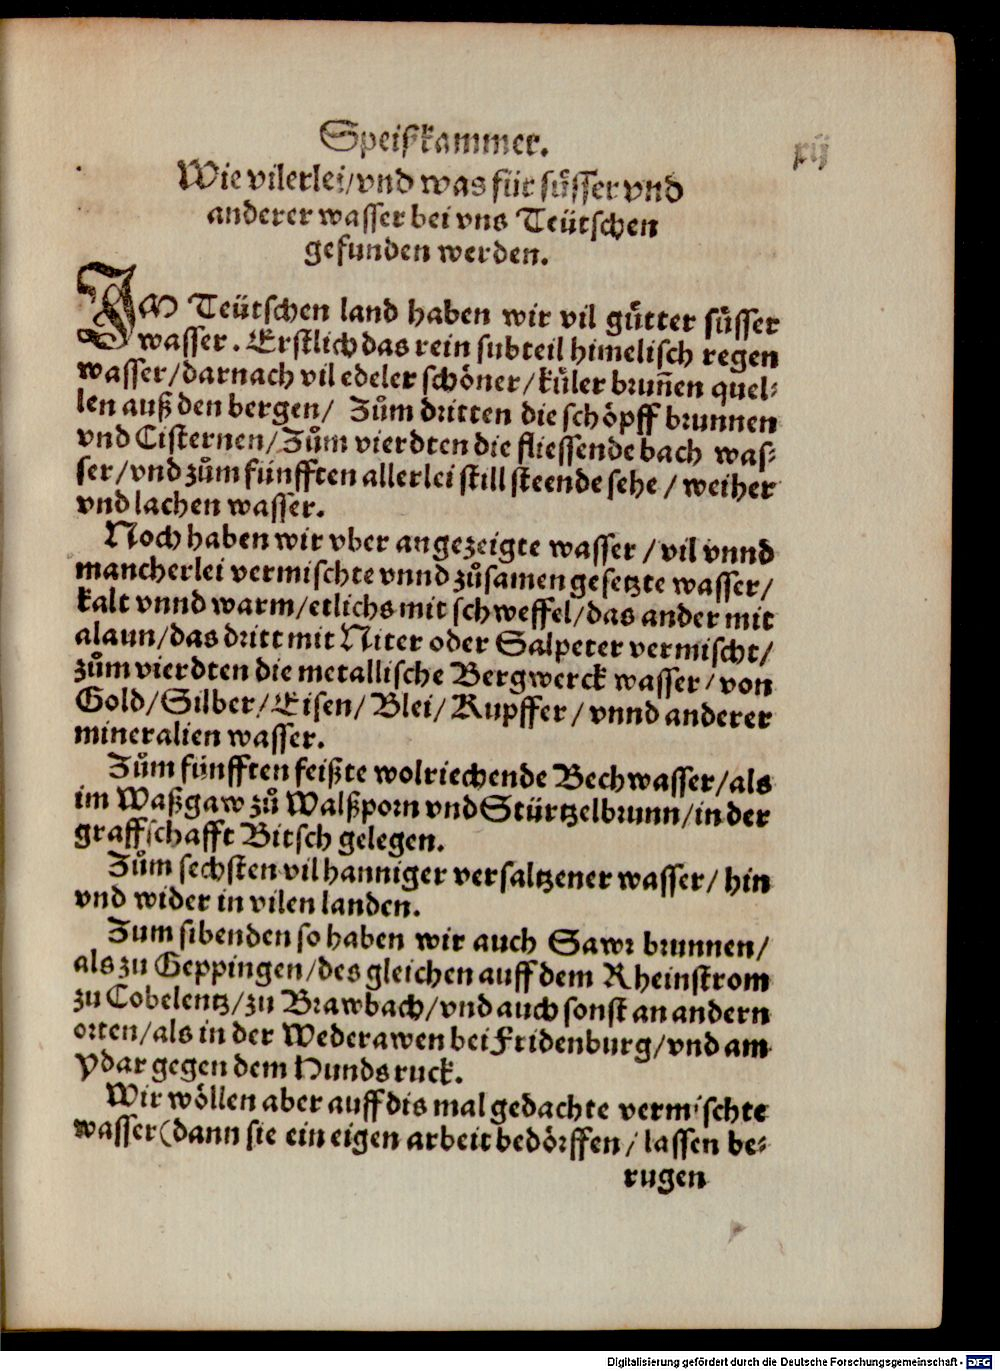 Speißkammer.
xij
Wie vilerlei/vnd was für süsser vnd
anderer wasser bei vns Teütschen
gefunden werden.
IM Teütschen land haben wir vil gůtter süsser
wasser. Erstlich das rein subteil himelisch regen
wasser/darnach vil edeler schöner/küler brun̄en quel-
len auß den bergen/ Zům dritten die schöpff brunnen
vnd Cisternen/Zům vierdten die fliessende bach was-
ser/vnd zům fünfften allerlei still steende sehe/weiher
vnd lachen wasser.
Noch haben wir vber angezeigte wasser/vil vnnd
mancherlei vermischte vnnd zůsamen gesetzte wasser/
kalt vnnd warm/etlichs mit schweffel/das ander mit
alaun/das dritt mit Niter oder Salpeter vermischt/
zům vierdten die metallische Bergwerck wasser/von
Gold/Silber/Eisen/Blei/Kupffer/vnnd anderer
mineralien wasser.
Zům fünfften feißte wolriechende Bechwasser/als
im Waßgaw zů Walßporn vnd Stürtzelbrunn/in der
graffschafft Bitsch gelegen.
Zům sechsten vil hanniger versaltzener wasser/hin
vnd wider in vilen landen.
Zum sibenden so haben wir auch Sawr brunnen/
als zu Geppingen/des gleichen auff dem Rheinstrom
zu Cobelentz/zu Brawbach/vnd auch sonst an andern
orten/als in der Wederawen bei Fridenburg/vnd am
Ydar gegen dem Hundsruck.
Wir wöllen aber auff dis mal gedachte vermischte
wasser(dann sie ein eigen arbeit bedörffen/lassen be-
rugen
Digitalisierung gefördert durch die Deutsche Forschungsgemeinschaft - DFG